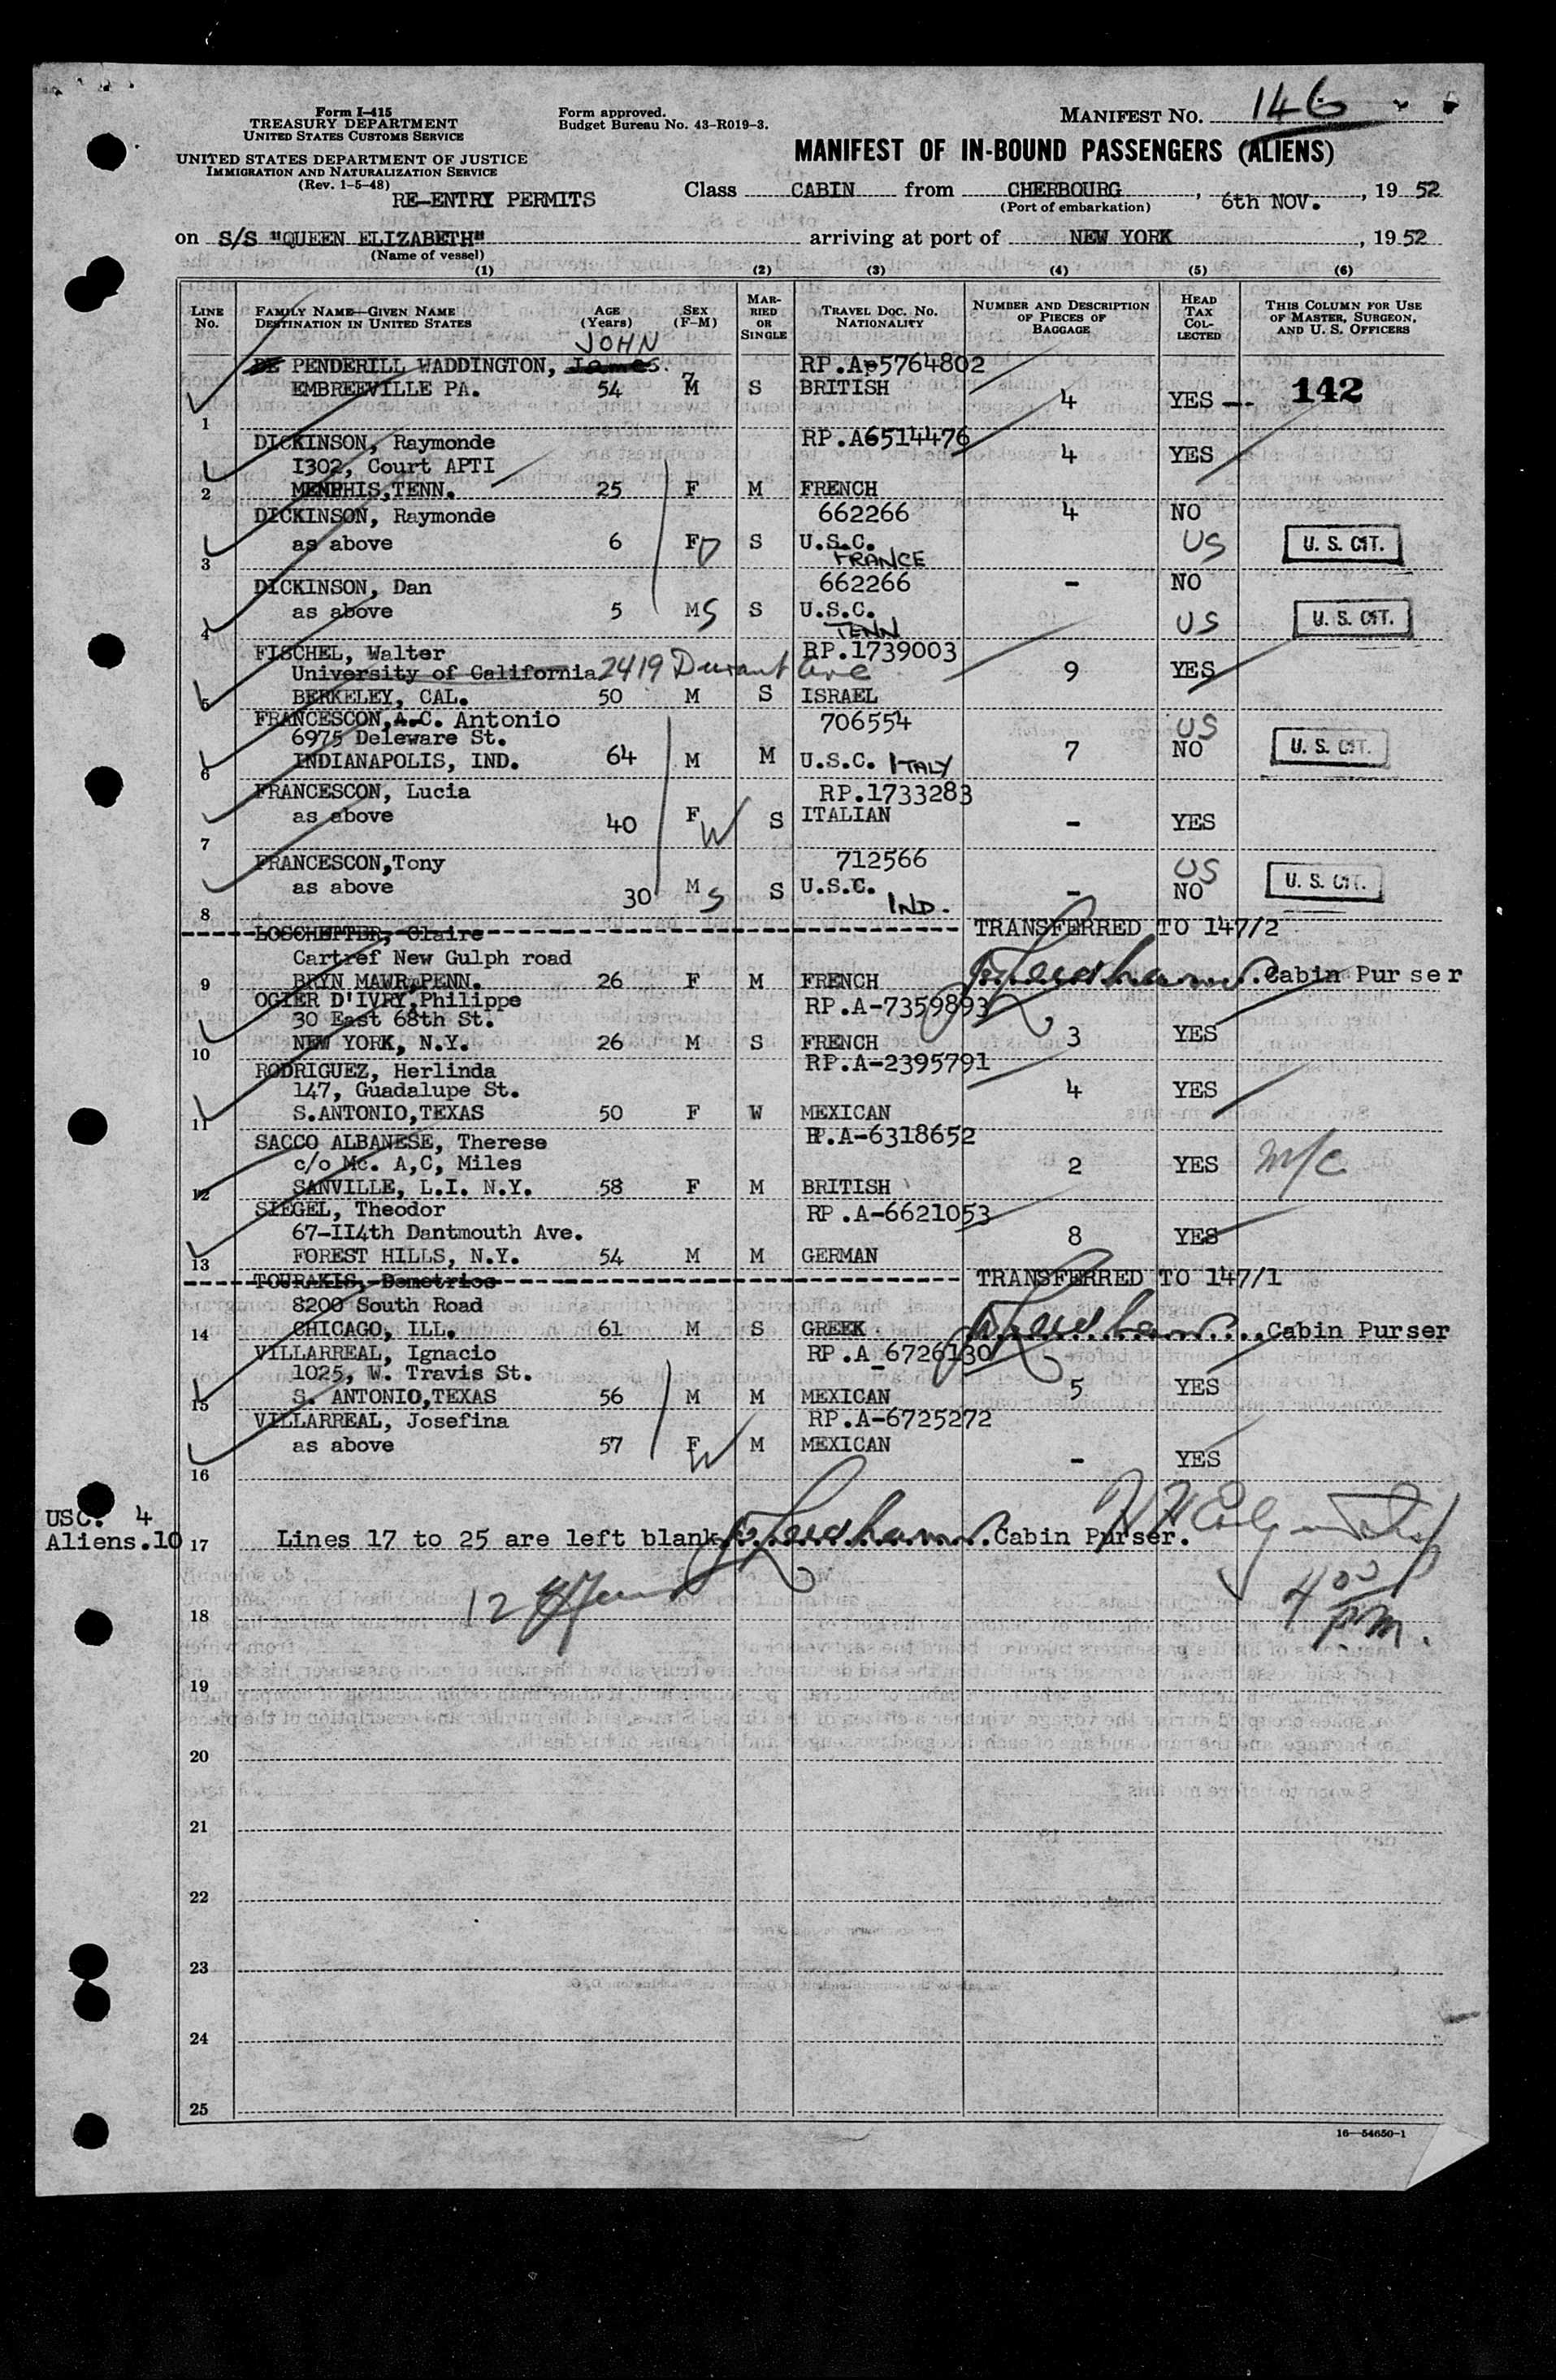 Form I-415
TREASURY DEPARTMENT
UNITED STATES CUSTOMS SERVICE
UNITED STATES DEPARTMENT OF JUSTICE
IMMIGRATION AND NATURALIZATION SERVICE
(Rev. 1-5-48)
RE-ENTRY PERMITS
Form approved.
Budget Bureau No. 43-R019-3.
MANIFEST NO. 146
MANIFEST OF IN-BOUND PASSENGERS (ALIENS)
Class CABIN from CHERBOURG, 6th NOV., 19 52
(Port of embarkation)
on S/S "QUEEN ELIZABETH" arriving at port of NEW YORK, 19 52
(Name of vessel)
(1) (2) (3) (4) (5) (6)
LINE No. FAMILY NAME—GIVEN NAME DESTINATION IN UNITED STATES AGE (Years) SEX (F-M) MARRIED OR SINGLE TRAVEL DOC. NO. NATIONALITY NUMBER AND DESCRIPTION OF PIECES OF BAGGAGE HEAD TAX COLLECTED THIS COLUMN FOR USE OF MASTER, SURGEON, AND U. S. OFFICERS
JOHN
DE PENDERILL WADDINGTON, James. RP.A-5764802
EMBREEVILLE PA. 54 M S BRITISH 4 YES — 142
1
DICKINSON, Raymonde RP.A6514476
I302, Court APTI 4 YES
2 MEMPHIS,TENN. 25 F M FRENCH
DICKINSON, Raymonde 662266 4 NO
as above 6 F D S U.S.C. US U. S. CIT.
3 FRANCE
DICKINSON, Dan 662266 - NO
as above 5 M S S U.S.C. US U. S. CIT.
4 TENN
FISCHEL, Walter RP.1739003
University of California 2419 Durant Ave 9 YES
5 BERKELEY, CAL. 50 M S ISRAEL
FRANCESCON,A.C. Antonio 706554 US
6975 Deleware St. 7 NO U. S. CIT.
6 INDIANAPOLIS, IND. 64 M M U.S.C. ITALY
FRANCESCON, Lucia RP.1733283
as above 40 F W S ITALIAN - YES
7
FRANCESCON,Tony 712566 US
as above 30 M S S U.S.C. IND. - NO U. S. CIT.
8
LOSCHETTER, Claire TRANSFERRED TO 147/2
Cartref New Gulph road
9 BRYN MAWR,PENN. 26 F M FRENCH Cabin Purser
OGIER D'IVRY,Philippe RP.A-7359893
30 East 68th St. 3 YES
10 NEW YORK, N.Y. 26 M S FRENCH
RODRIGUEZ, Herlinda RP.A-2395791
147, Guadalupe St. 4 YES
11 S.ANTONIO,TEXAS 50 F W MEXICAN
SACCO ALBANESE, Therese RP.A-6318652
c/o Mc. A,C, Miles 2 YES M/C
12 SANVILLE, L.I. N.Y. 58 F M BRITISH
SIEGEL, Theodor RP.A-6621053
67-II4th Dantmouth Ave. 8 YES
13 FOREST HILLS, N.Y. 54 M M GERMAN
TOURAKIS, Demetrios TRANSFERRED TO 147/1
8200 South Road
14 CHICAGO, ILL. 61 M S GREEK Cabin Purser
VILLARREAL, Ignacio RP.A_6726130
1025, W. Travis St. 5 YES
15 S. ANTONIO,TEXAS 56 M M MEXICAN
VILLARREAL, Josefina RP.A-6725272
as above 57 F W M MEXICAN - YES
16
USC. 4
Aliens.10
17 Lines 17 to 25 are left blank Cabin Purser.
12
4 00 P.M.
18
19
20
21
22
23
24
25
16—54650-1